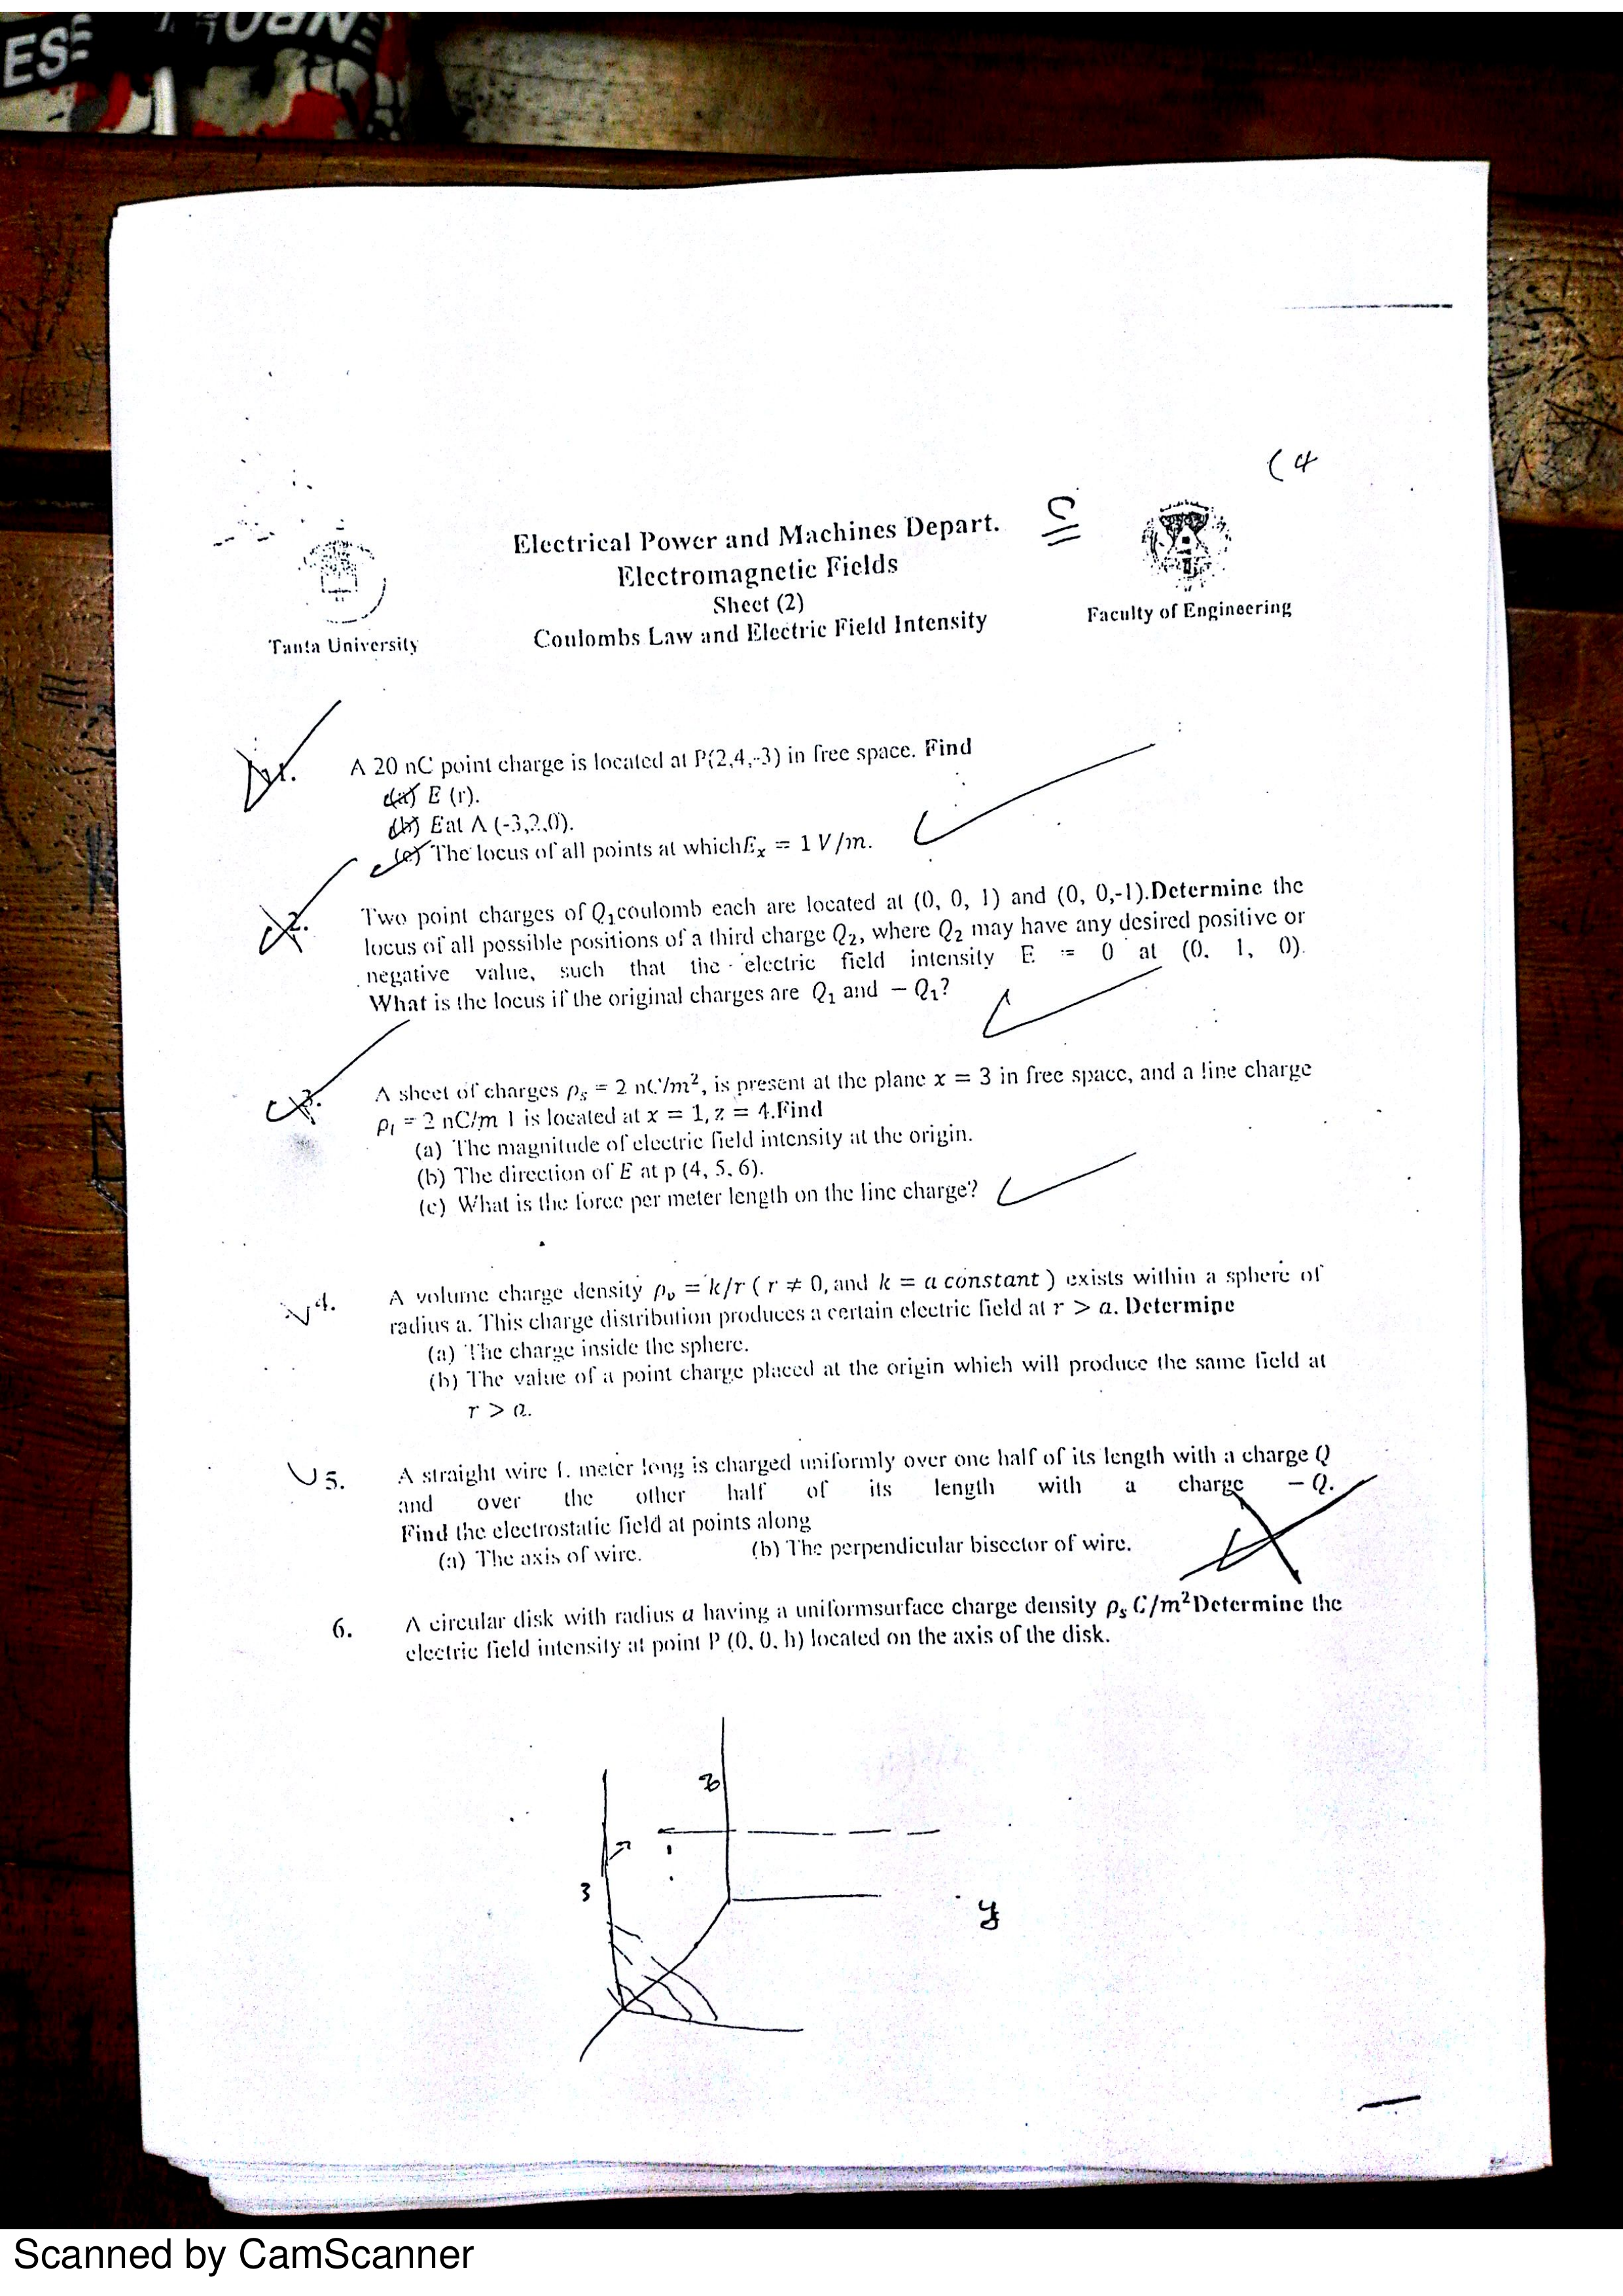 ES
(4
Electrical Power and Machines Depart.
Electromagnetic Fields
Sheet (2)
Coulombs Law and Electric Field Intensity
Tanta University
Faculty of Engineering
1. A 20 nC point charge is located at P(2,4,-3) in free space. Find
(a) E (r).
(b) E at A (-3,2,0).
(c) The locus of all points at which E_x = 1 V/m.
2. Two point charges of Q₁coulomb each are located at (0, 0, 1) and (0, 0,-1).Determine the
locus of all possible positions of a third charge Q₂, where Q₂ may have any desired positive or
negative value, such that the electric field intensity E = 0 at (0, 1, 0).
What is the locus if the original charges are Q₁ and − Q₁?
3. A sheet of charges ρₛ = 2 nC/m², is present at the plane x = 3 in free space, and a line charge
ρₗ = 2 nC/m l is located at x = 1, z = 4.Find
(a) The magnitude of electric field intensity at the origin.
(b) The direction of E at p (4, 5, 6).
(c) What is the force per meter length on the line charge?
4. A volume charge density ρᵥ = k/r ( r ≠ 0, and k = a constant ) exists within a sphere of
radius a. This charge distribution produces a certain electric field at r > a. Determine
(a) The charge inside the sphere.
(b) The value of a point charge placed at the origin which will produce the same field at
r > a.
5. A straight wire L meter long is charged uniformly over one half of its length with a charge Q
and over the other half of its length with a charge − Q.
Find the electrostatic field at points along
(a) The axis of wire. (b) The perpendicular bisector of wire.
6. A circular disk with radius a having a uniformsurface charge density ρₛ C/m²Determine the
electric field intensity at point P (0, 0, h) located on the axis of the disk.
z
3
y
Scanned by CamScanner